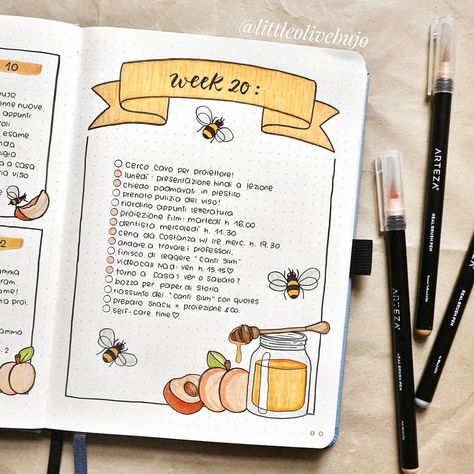 @littleolivebujo
10
enne nuove
esame
a casa
a viso
2
gramma
ramma
o proi.
amma
2
week 20:
cerco cavo per proiettore!
lunedì: presentazione hindi a lezione
chiedo padmavati in prestito
prenoto pulizia del viso!
riordino appunti letteratura
proiezione film: martedì h 16.00
dentista mercoledì h. 11.30
cena da Costanza w/ tre merc. h. 19.30
andare a trovare i professori.
finisco di leggere "Canti Sum"
videocall Nad: ven h. 15.15♡
torno a Casa: ven o sabato?
bozza per paper di Storia
riassunto dei "Canti Sum" con quotes
preparo snack x proiezione &co.
self-care time♡
ARTEZA
REAL BRUSH PEN
ARTEZA
REAL BRUSH PEN
ARTEZA
REAL BRUSH PEN